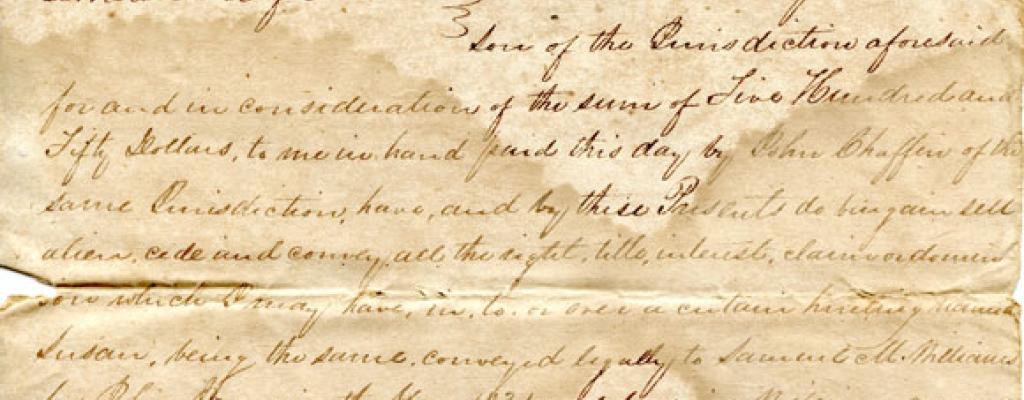 son of the Jurisdiction aforesaid
for and in consideration of the sum of Five Hundred and
Fifty Dollars, to me in hand paid this day by John Chaffin of the
same Jurisdiction, have, and by these Presents do bargain sell
alien, cede and convey, all the right, title, interest, claim or
ion which I may have, in, to, or over a certain named
Susan, being the same conveyed legally to Samuel M. Williams
by in the